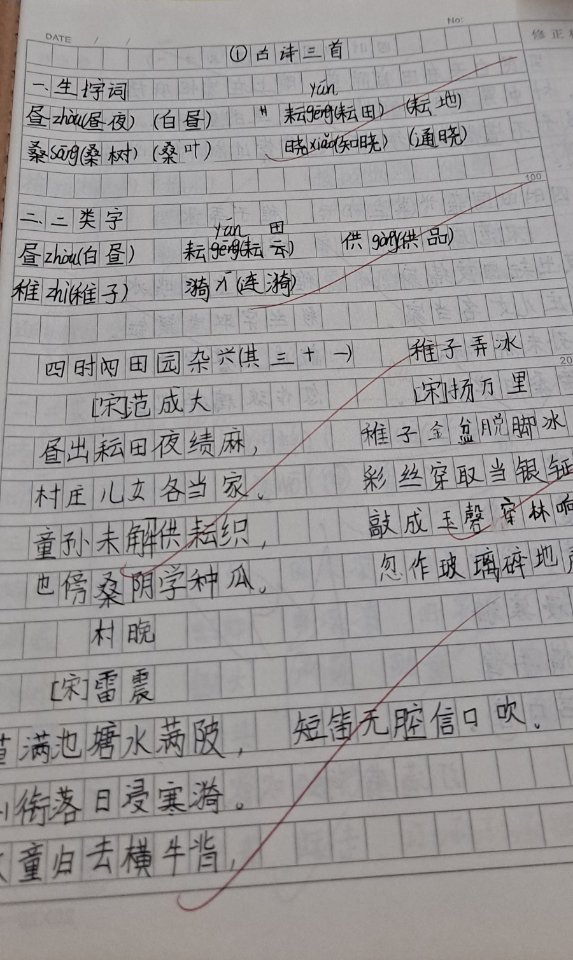 DATE / / No: 修正
①古诗三首
一、生字词
yún
昼zhòu(昼夜)(白昼) 耘gēng(耘田)(耘地)
桑sāng(桑树)(桑叶) 晓xiǎo(知晓)(通晓)
100
二、二类字
yún 田
昼zhòu(白昼) 耘gēng(耘云) 供gòng(供品)
稚zhì(稚子) 漪yī(连漪)
四时田园杂兴(其三十一) 稚子弄冰
20
[宋]范成大 [宋]扬万里
昼出耘田夜绩麻, 稚子金盆脱脚冰
村庄儿女各当家。 彩丝穿取当银钲
童孙未解供耘织, 敲成玉磬穿林响
也傍桑阴学种瓜。 忽作玻璃碎地
村晚
[宋]雷震
满池塘水满陂, 短笛无腔信口吹。
衔落日浸寒漪。
童归去横牛背,